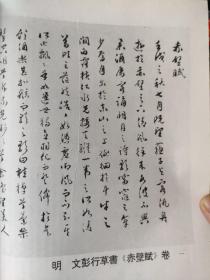 赤壁賦
壬戌之秋七月既望蘇子與客泛舟
遊於赤壁之下清風徐來水波不興
舉酒屬客誦明月之詩歌窈窕之章
少焉月出於東山之上徘徊於斗牛之
間白露橫江水光接天縱一葦之所如凌
萬頃之茫然浩浩乎如馮虛御風而不知其
所止飄飄乎如遺世獨立羽化而登仙於是
飲酒樂甚扣舷而歌之歌曰桂棹兮蘭槳
擊空明兮泝流光渺渺兮余懷望美人
明 文彭行草書《赤壁賦》卷 一